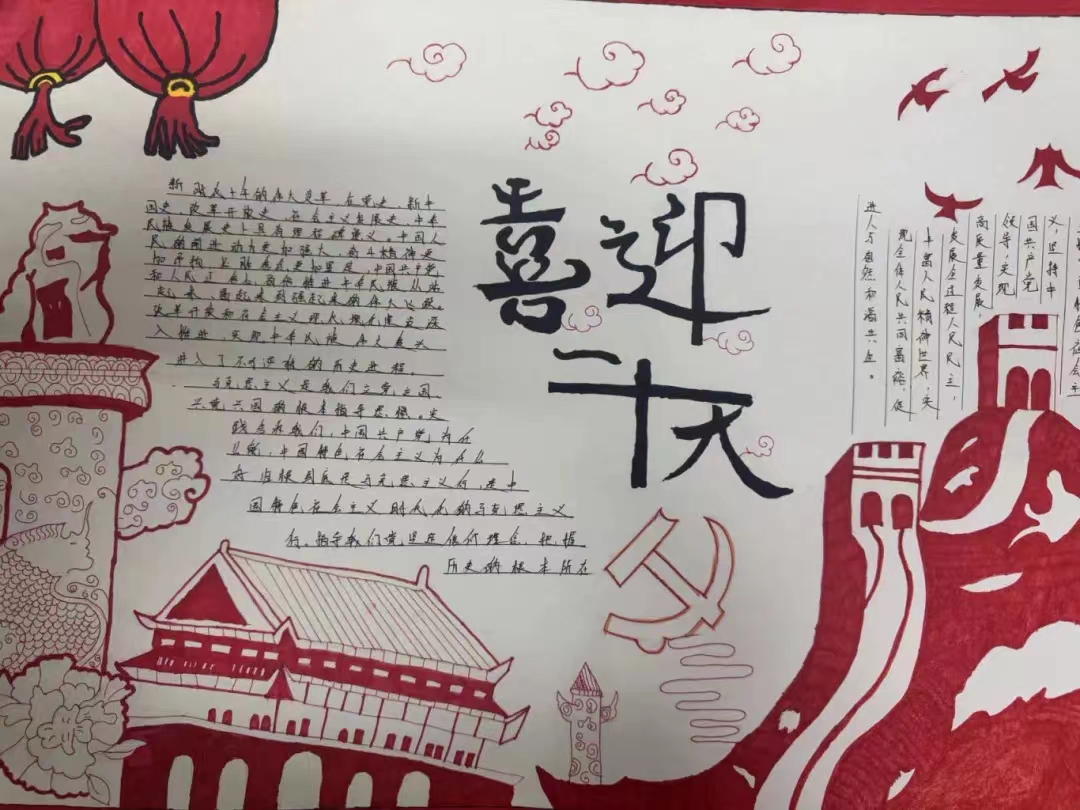 喜迎
二十大
新时代十年的伟大变革，在党史、新中
国史、改革开放史、社会主义发展史、中华
民族发展史上具有里程碑意义。中国人
民的前进动力更加强大、奋斗精神更
加昂扬、必胜信念更加坚定，中国共产党
和人民 推进中华民族从站
起来、富起来到强起来的伟大飞跃。
改革开放和社会主义现代化建设深
入推进，实现中华民族伟大复兴
进入了不可逆转的历史进程。
马克思主义是我们立党立国
兴党兴国的根本指导思想。实
践告诉我们，中国共产党为什
么能，中国特色社会主义为什么
好，归根到底是马克思主义行，是中
国特色社会主义时代化的马克思主义
行。指导我们党坚定信仰理念，把握
历史的根本所在
义，坚持中
国共产党
领导，实现
高质量发展，
发展全过程人民民主，
丰富人民精神世界，实
现全体人民共同富裕，促
进人与自然和谐共生。